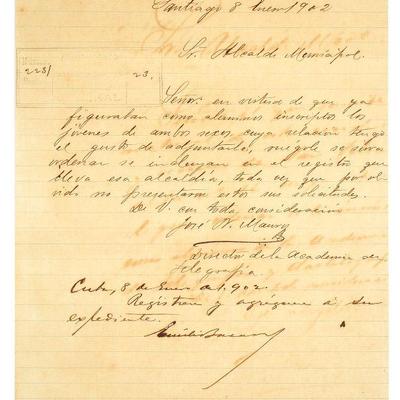 Santiago 8 Enero 1902
Sr. Alcalde Municipal.
2231
23.
Señor: en virtud de que ya
figuraban como alumnos inscriptos los
jóvenes de ambos sexos cuya relación tengo
el gusto de adjuntarle, ruégole se sirva
ordenar se incluyan en el registro que
lleva esa alcaldía, toda vez que por ol-
vido no presentaron estos sus solicitudes.
De V. con toda consideración
José
Director de la Academia de
Telegrafía
Cuba, 8 de Enero de 1902.
Registren y agréguen á su
expediente.
Emilio Bacardí